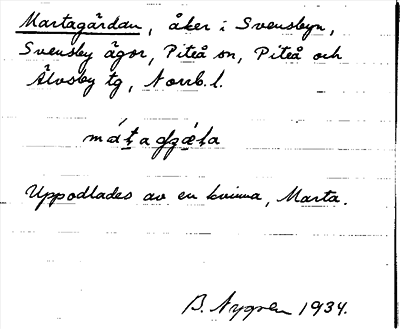 Martagårdan, åker i Svensbyn,
Svensby ägor, Piteå sn, Piteå och
Älvsby tg, Norrb. l.
Uppodlades av en kvinna, Marta.
B. Nygren 1934.